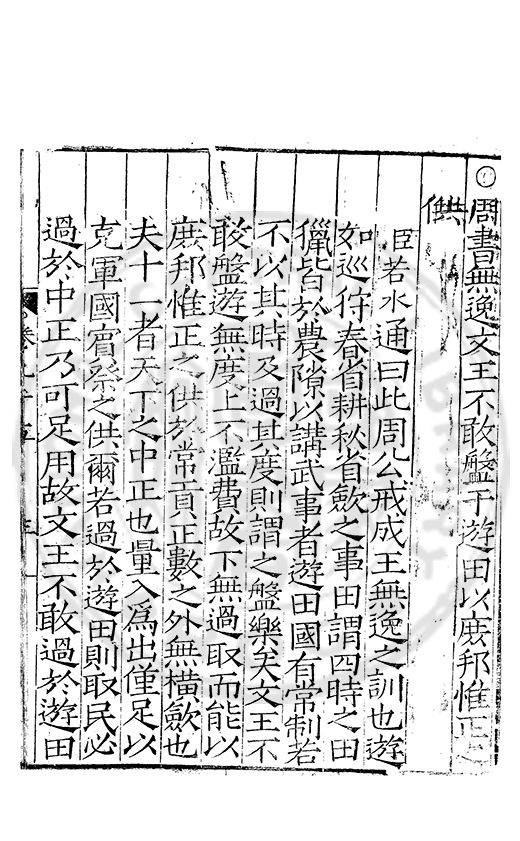 周書無逸文王不敢盤于遊田以庶邦惟正之
供
臣若水通曰此周公戒成王無逸之訓也遊
如巡狩春省耕秋省斂之事田謂四時之田
獵皆於農隙以講武事者遊田國有常制若
不以其時及過其度則謂之盤樂夫文王不
敢盤遊無度上不濫費故下無過取而能以
庶邦惟正之供於常貢正數之外無橫斂也
夫十一者天下之中正也量入爲出僅足以
克軍國賓祭之供爾若過於遊田則取民必
過於中正乃可足用故文王不敢過於遊田